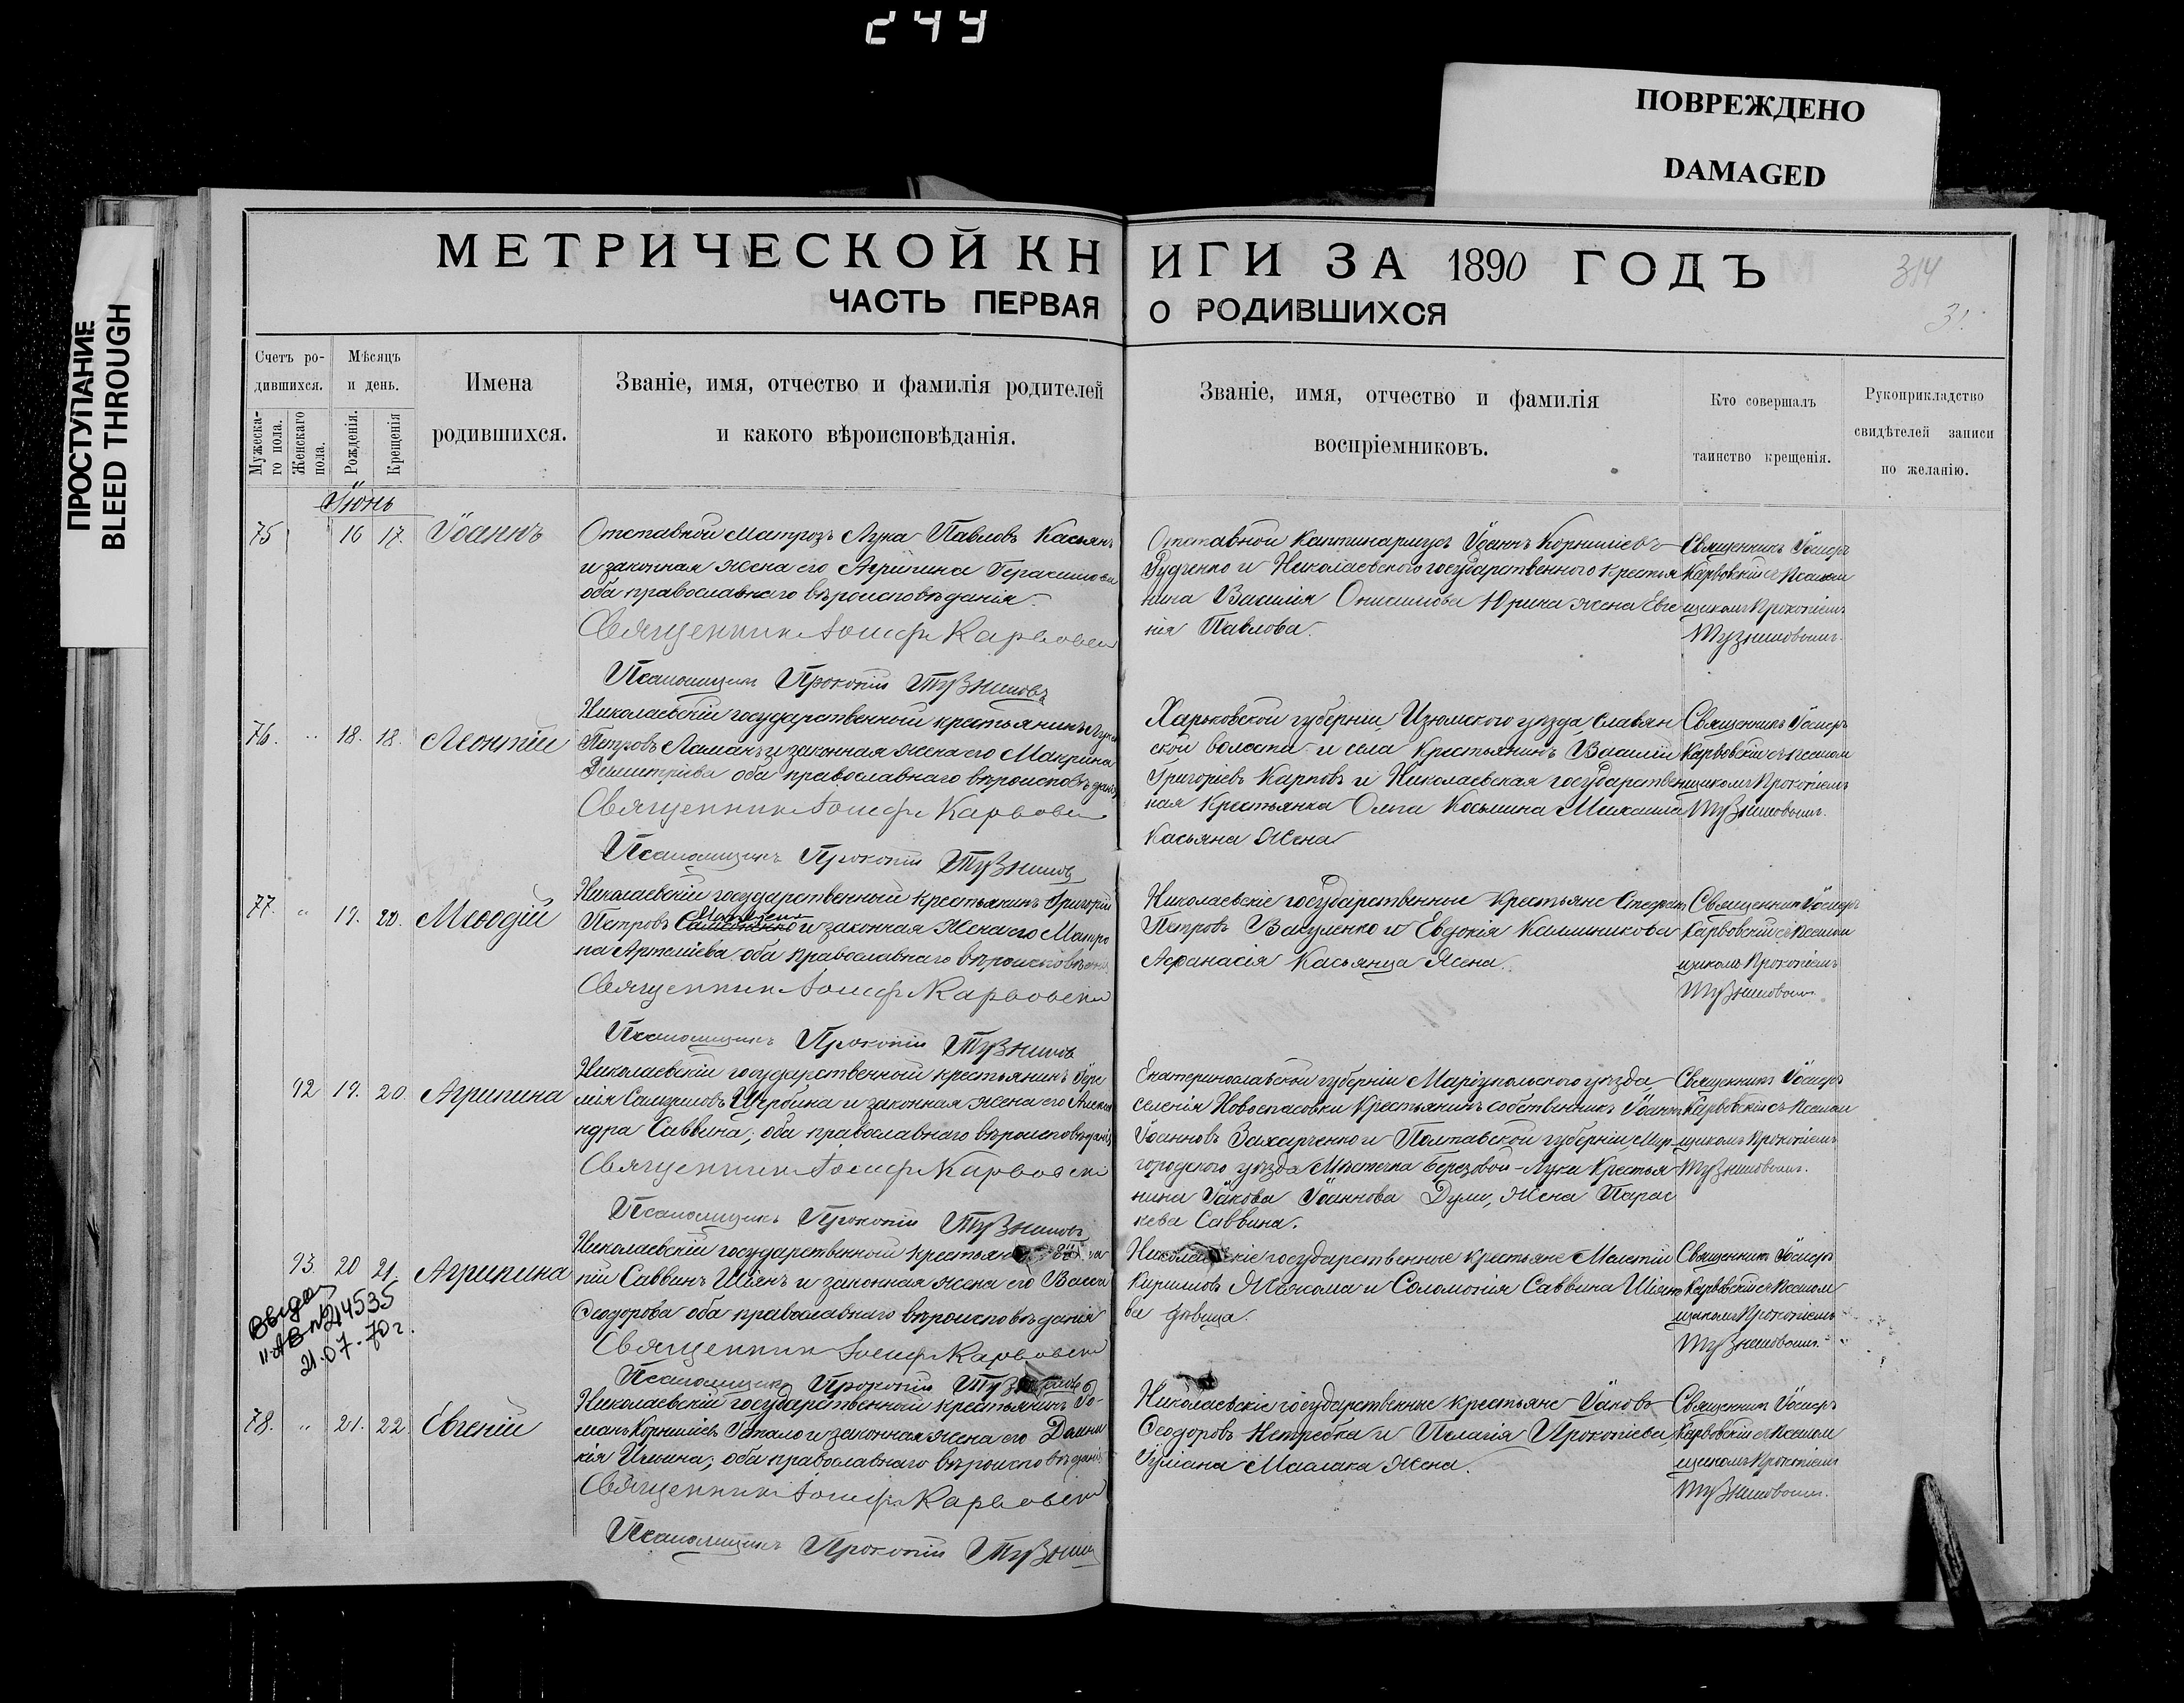 244
ПОВРЕЖДЕНО
DAMAGED
ПРОСТУПАНИЕ
BLEED THROUGH
МЕТРИЧЕСКОЙ КНИГИ ЗА 1890 ГОДЪ
314
ЧАСТЬ ПЕРВАЯ О РОДИВШИХСЯ
31
Счетъ ро-
дившихся.
Мужеска-
го пола.
Женскаго
пола.
Мѣсяцъ
и день.
Рожденія.
Крещенія
Имена
родившихся.
Званіе, имя, отчество и фамилія родителей
и какого вѣроисповѣданія.
Званіе, имя, отчество и фамилія
воспріемниковъ.
Кто совершалъ
таинство крещенія.
Рукоприкладство
свидѣтелей записи
по желанію.
Іюнь
75 16 17. Іоаннъ
Отставной матрозъ Лука Павловъ Касьянъ
и законная жена его Агрипина Герасимова
оба православнаго вѣроисповѣданія.
Священникъ Іосифъ Карвовскі
Псаломщикъ Прокопій
Отставной Каптинармусъ Іоаннъ Корниліевъ
Дудченко и Николаевского государственного крестья
нина Василія Онисимова Юрина жена Евге
нія Павлова.
Священникъ Іосифъ
Карвовскій съ псалом
щикомъ Прокопіемъ
76. " 18. 18. Леонтій
Николаевскій государственный крестьянинъ
Петровъ Ломанъ и законная жена его Макрина
Димитріева оба православнаго вѣроисповѣданія
Священникъ Іосифъ Карвовскі
Псаломщикъ Прокопій
Харьковской губерніи, Изюмского уѣзда, Славян
ской волости и села Крестьянинъ Василій
Григорьевъ Карповъ и Николаевская государствен
ная Крестьянка Ольга Косьмина Михаила
Касьяна Жена
Священникъ Іосифъ
Карвовскій съ псалом
щикомъ Прокопіемъ
77. " 19. 20. Меѳодій
Николаевскій государственный крестьянинъ Григорій
Петровъ и законная Жена его Матро
на Артеміева, оба православнаго вѣроисповѣданія
Священникъ Іосифъ Карвовскі
Псаломщикъ Прокопій
Николаевскіе государственные крестьяне Стефанъ
Петровъ Вакуленко и Евдокія Калинникова
Аѳанасія Касьянца Жена.
Священникъ Іосифъ
Карвовскій съ псалом
щикомъ Прокопіемъ
92 19. 20. Агрипина
Николаевскій государственный крестьянинъ Іере
мія Самуиловъ Щербина и законная жена его Алекса
ндра Саввина; оба православнаго вѣроисповѣданія
Священникъ Іосифъ Карвовскі
Псаломщикъ Прокопій
Екатеринославской губерніи Маріупольского уѣзда,
селенія Новоспасовки Крестьянинъ собственникъ Іоаннъ
Іоанновъ Захарченко и Полтавской губерніи, Мир-
городского уѣзда Мѣстечка Березовой-Луки Крестья
нина Іакова Іоаннова Дули, Жена Парас
кева Саввина.
Священникъ Іосифъ
Карвовскій съ псалом
щикомъ Прокопіемъ
93 20 21. Агрипина
Николаевскій государственный крестьян
ній Саввинъ Шіянъ и законная жена его Васса
Ѳеодорова оба православнаго вѣроисповѣданія
Священникъ Іосифъ Карвовскі
Псаломщикъ Прокопій
Николаевскіе государственные крестьяне Мелетій
Кирилловъ Можома и Соломонія Саввина Шіяно
ва дѣвица.
Священникъ Іосифъ
Карвовскій съ псалом
щикомъ Прокопіемъ
21.07.70г.
78. " 21. 22 Евгеній
Николаевскій государственный крестьянинъ Ро-
манъ Корниліевъ и законная жена его Домни
кія Ильина; оба православнаго вѣроисповѣданія
Священникъ Іосифъ Карвовскі
Псаломщикъ Прокопій
Николаевскіе государственные крестьяне Іаковъ
Ѳеодоровъ Нетребка и Пелагія Прокопіева,
Іуліана Маслака Жена.
Священникъ Іосифъ
Карвовскій съ псалом
щикомъ Прокопіемъ